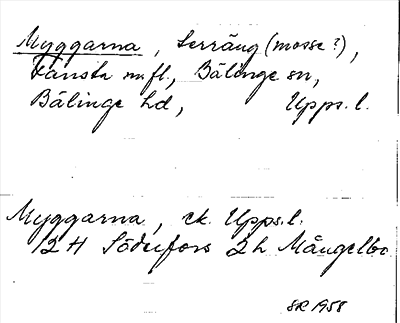 Myggarna, Terräng (mosse?),
Fansta m.fl., Bälinge sn,
Bälinge hd, Upps. l.
Myggarna, ek. Upps. l.
12 H Söderfors 2 h Mångelbo
SR 1958